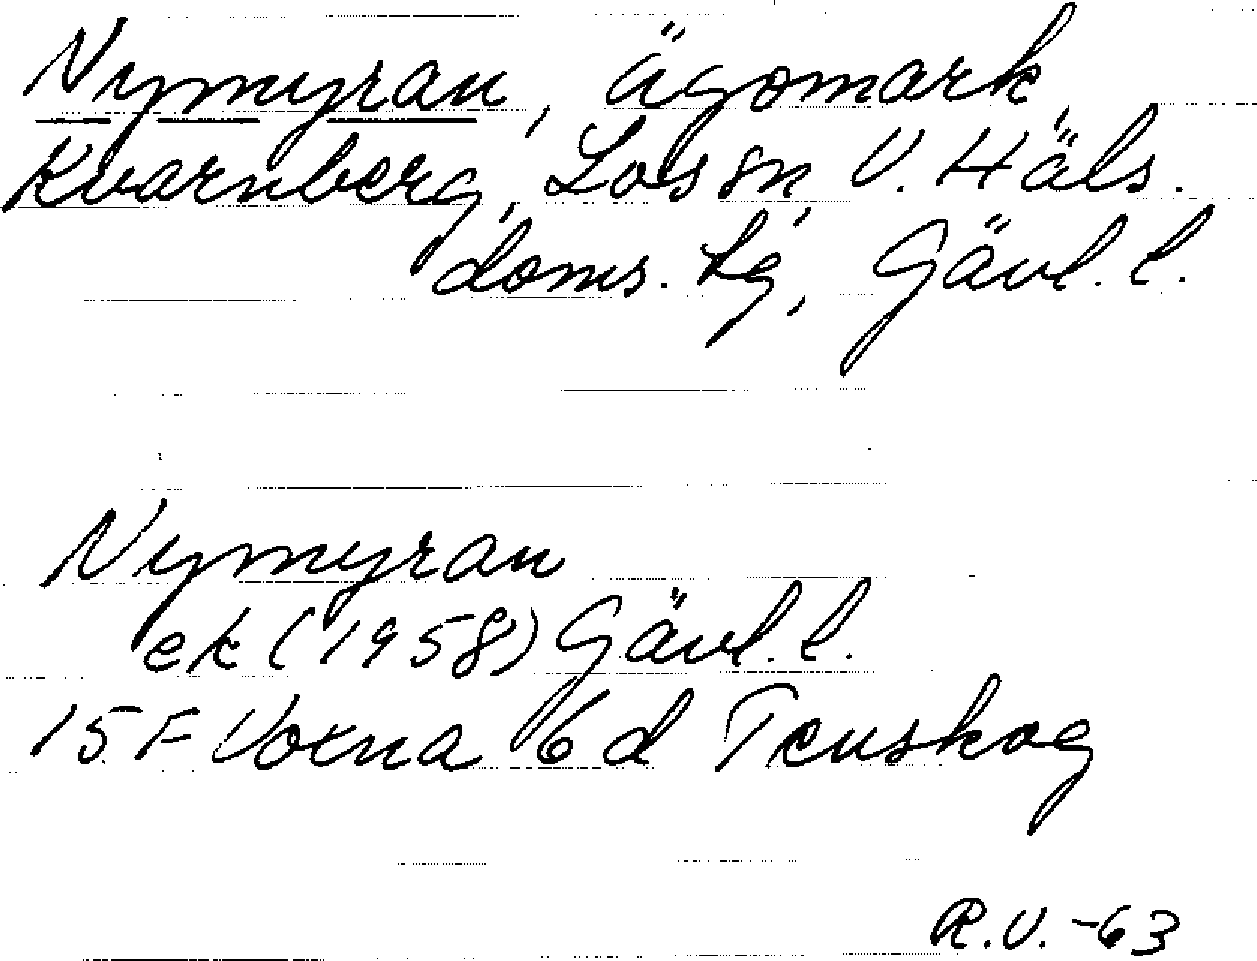 Nymyran, ägomark,
Kvarnberg, Los sn, V. Häls.
doms. lg, Gävl. l.
Nymyran
ek (1958) Gävl. l.
15 F Voxna 6 d Tenskog
R.V. -63